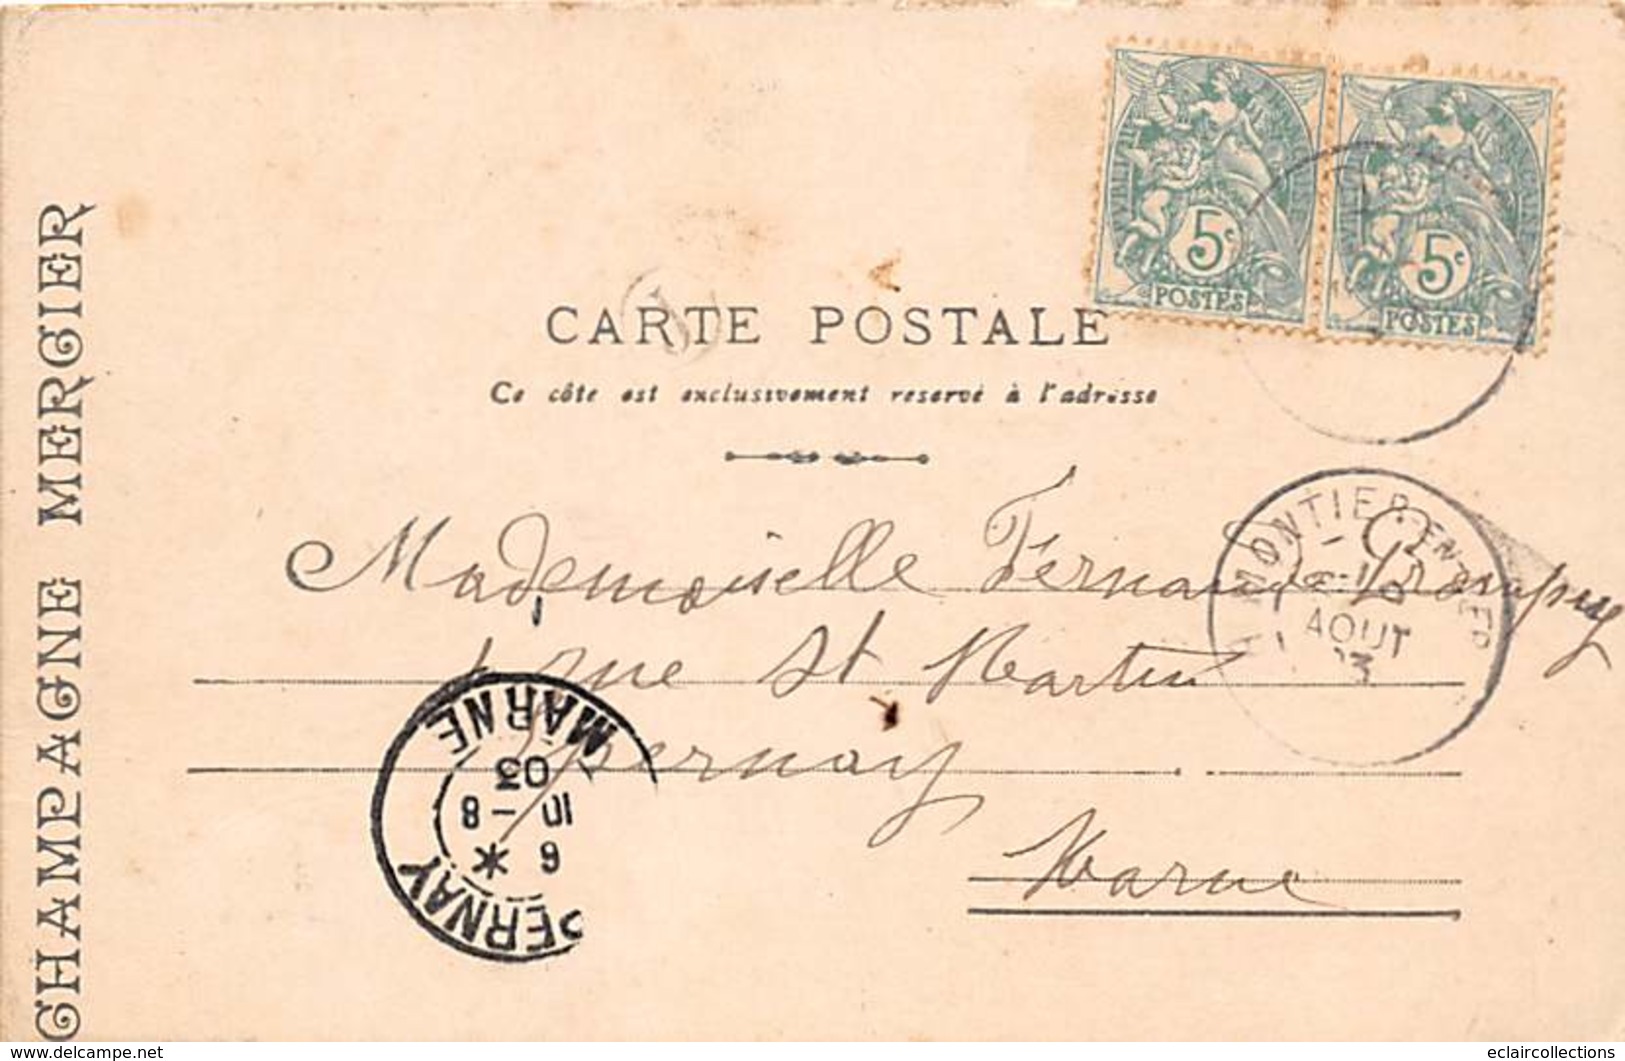 CHAMPAGNE MERCIER
5c
POSTES
5c
POSTES
CARTE POSTALE
Ce côte est exclusivement reservé à l'adresse
Mademoiselle Fernande
1 rue St Martin
Epernay
Marne
MONTIER EN DER
AOUT
03
EPERNAY
6 *
8
03
MARNE
eclaircollections